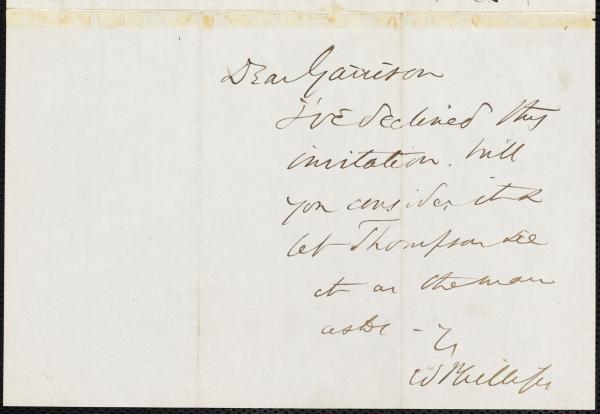 Dear Garrison
I've declined this
invitation. Will
you consider it &
let Thompson see
it as the man
asks - Yr
W Phillips